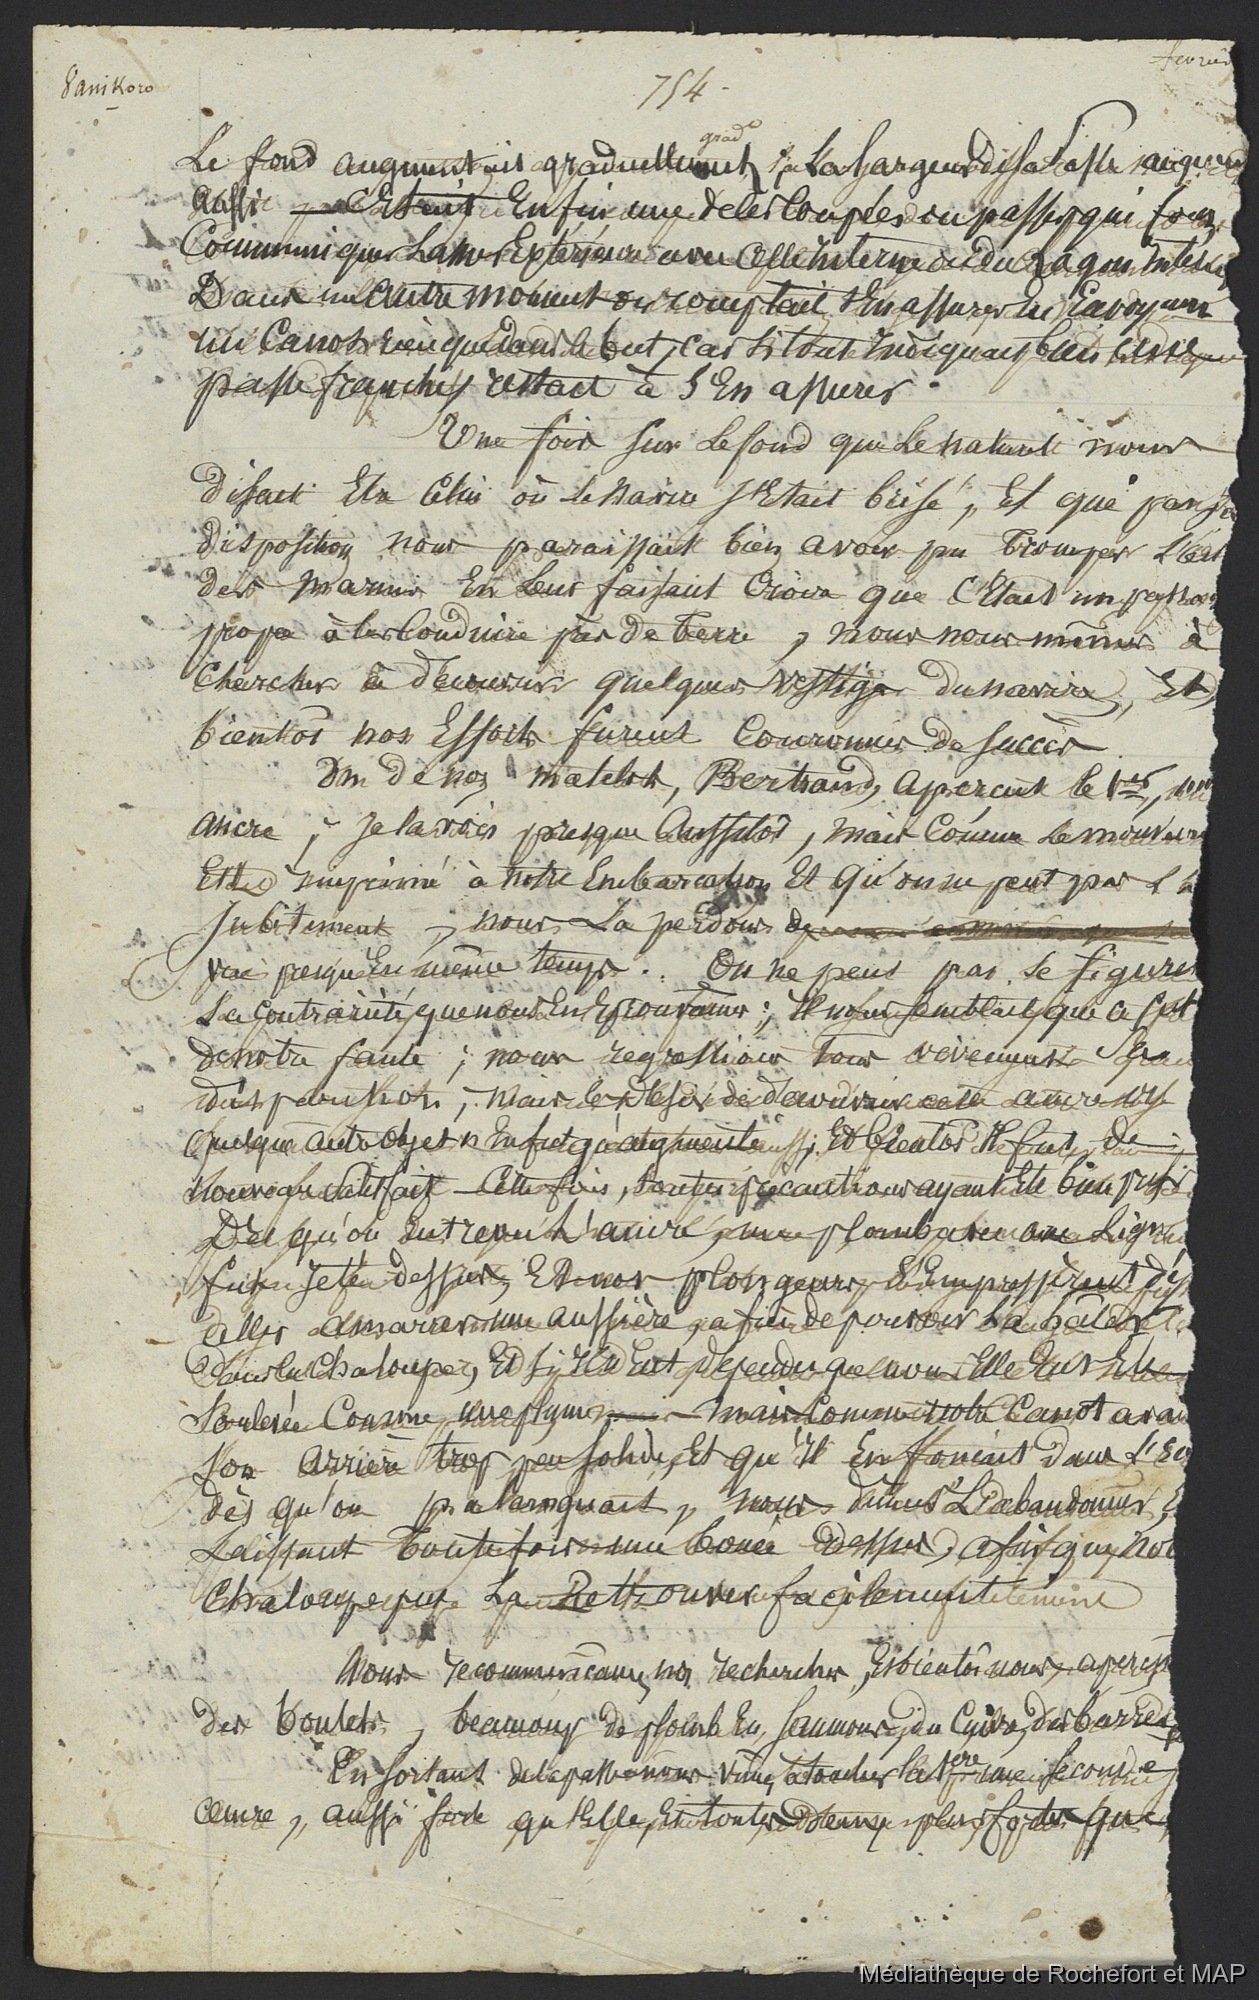 Vanikoro
fevrier
754
grad
Le fond augmentait graduellement, La Largeur
aussi C'Etait Enfin une de ces Coupées ou passes qui font
Communiquer La mer Extérieure avec celle interne ou du Lagon
Dans un autre moment on comptait s'En assurer En Envoyant
un Canot rien que dans ce but, car si tout indiquait bien
passe franche, restait à s'En assurer.
Une fois sur le fond que le naturel nous
disait Etre celui où le navire s'Etait brisé, Et que par sa
disposition nous paraissait bien avoir pu tromper l'
des marins En leur faisant croire que C'Etait un passage
propre à les Conduire près de terre, nous nous mîmes à
chercher à découvrir quelques vestiges du navire, Et
bientôt nos Efforts furent Couronnés de succès
Un de nos matelots, Bertrand, apercut le 1er, une
ancre, je la vois presque aussitôt, mais comme le mouvement
Etait imprimé à notre Embarcation Et qu'on ne peut pas l'
subitement, nous La perdons de
vue presqu'En même temps. On ne peut pas se figurer
La contrariété que nous En Eprouvâmes; il nous semblait que c'était
de notre faute; nous regrettions tous vivement
mais le désir de découvrir cette ancre ou
quelque autre objet n'En fut qu'augmenté aussi; Et bientôt il fut de
nouveau satisfait Cette fois, toutes précautions ayant Eté bien prises
Dès qu'on Entrevit l'ancre, un plomb avec une Ligne
furent jetés dessus, Et nos plongeurs s'Empressèrent
d'aller amarrer une aussière afin de pouvoir La haler
dans la Chaloupe, Et s'il n'Eut dépendu que nous Elle Eut Eté
soulevée Comme une plume mais Comme notre Canot avait
son arrière trop peu solide, Et qu'il Enfoncait dans l'Eau
dès qu'on palanquait, nous dûmes L'abandonner,
Laissant toutefois une bouée dessus, afin que notre
Chaloupe put La Retrouver facilement
Nous recommencames nos recherches, Et bientôt nous aperçumes
des boulets, beaucoup de plomb En saumons, du cuivre, des barres de
En sortant de la passe nous vimes à toucher la 1ere une seconde
ancre, aussi forte qu'Elle, Et toutes deux plus fortes que
Médiathèque de Rochefort et MAP